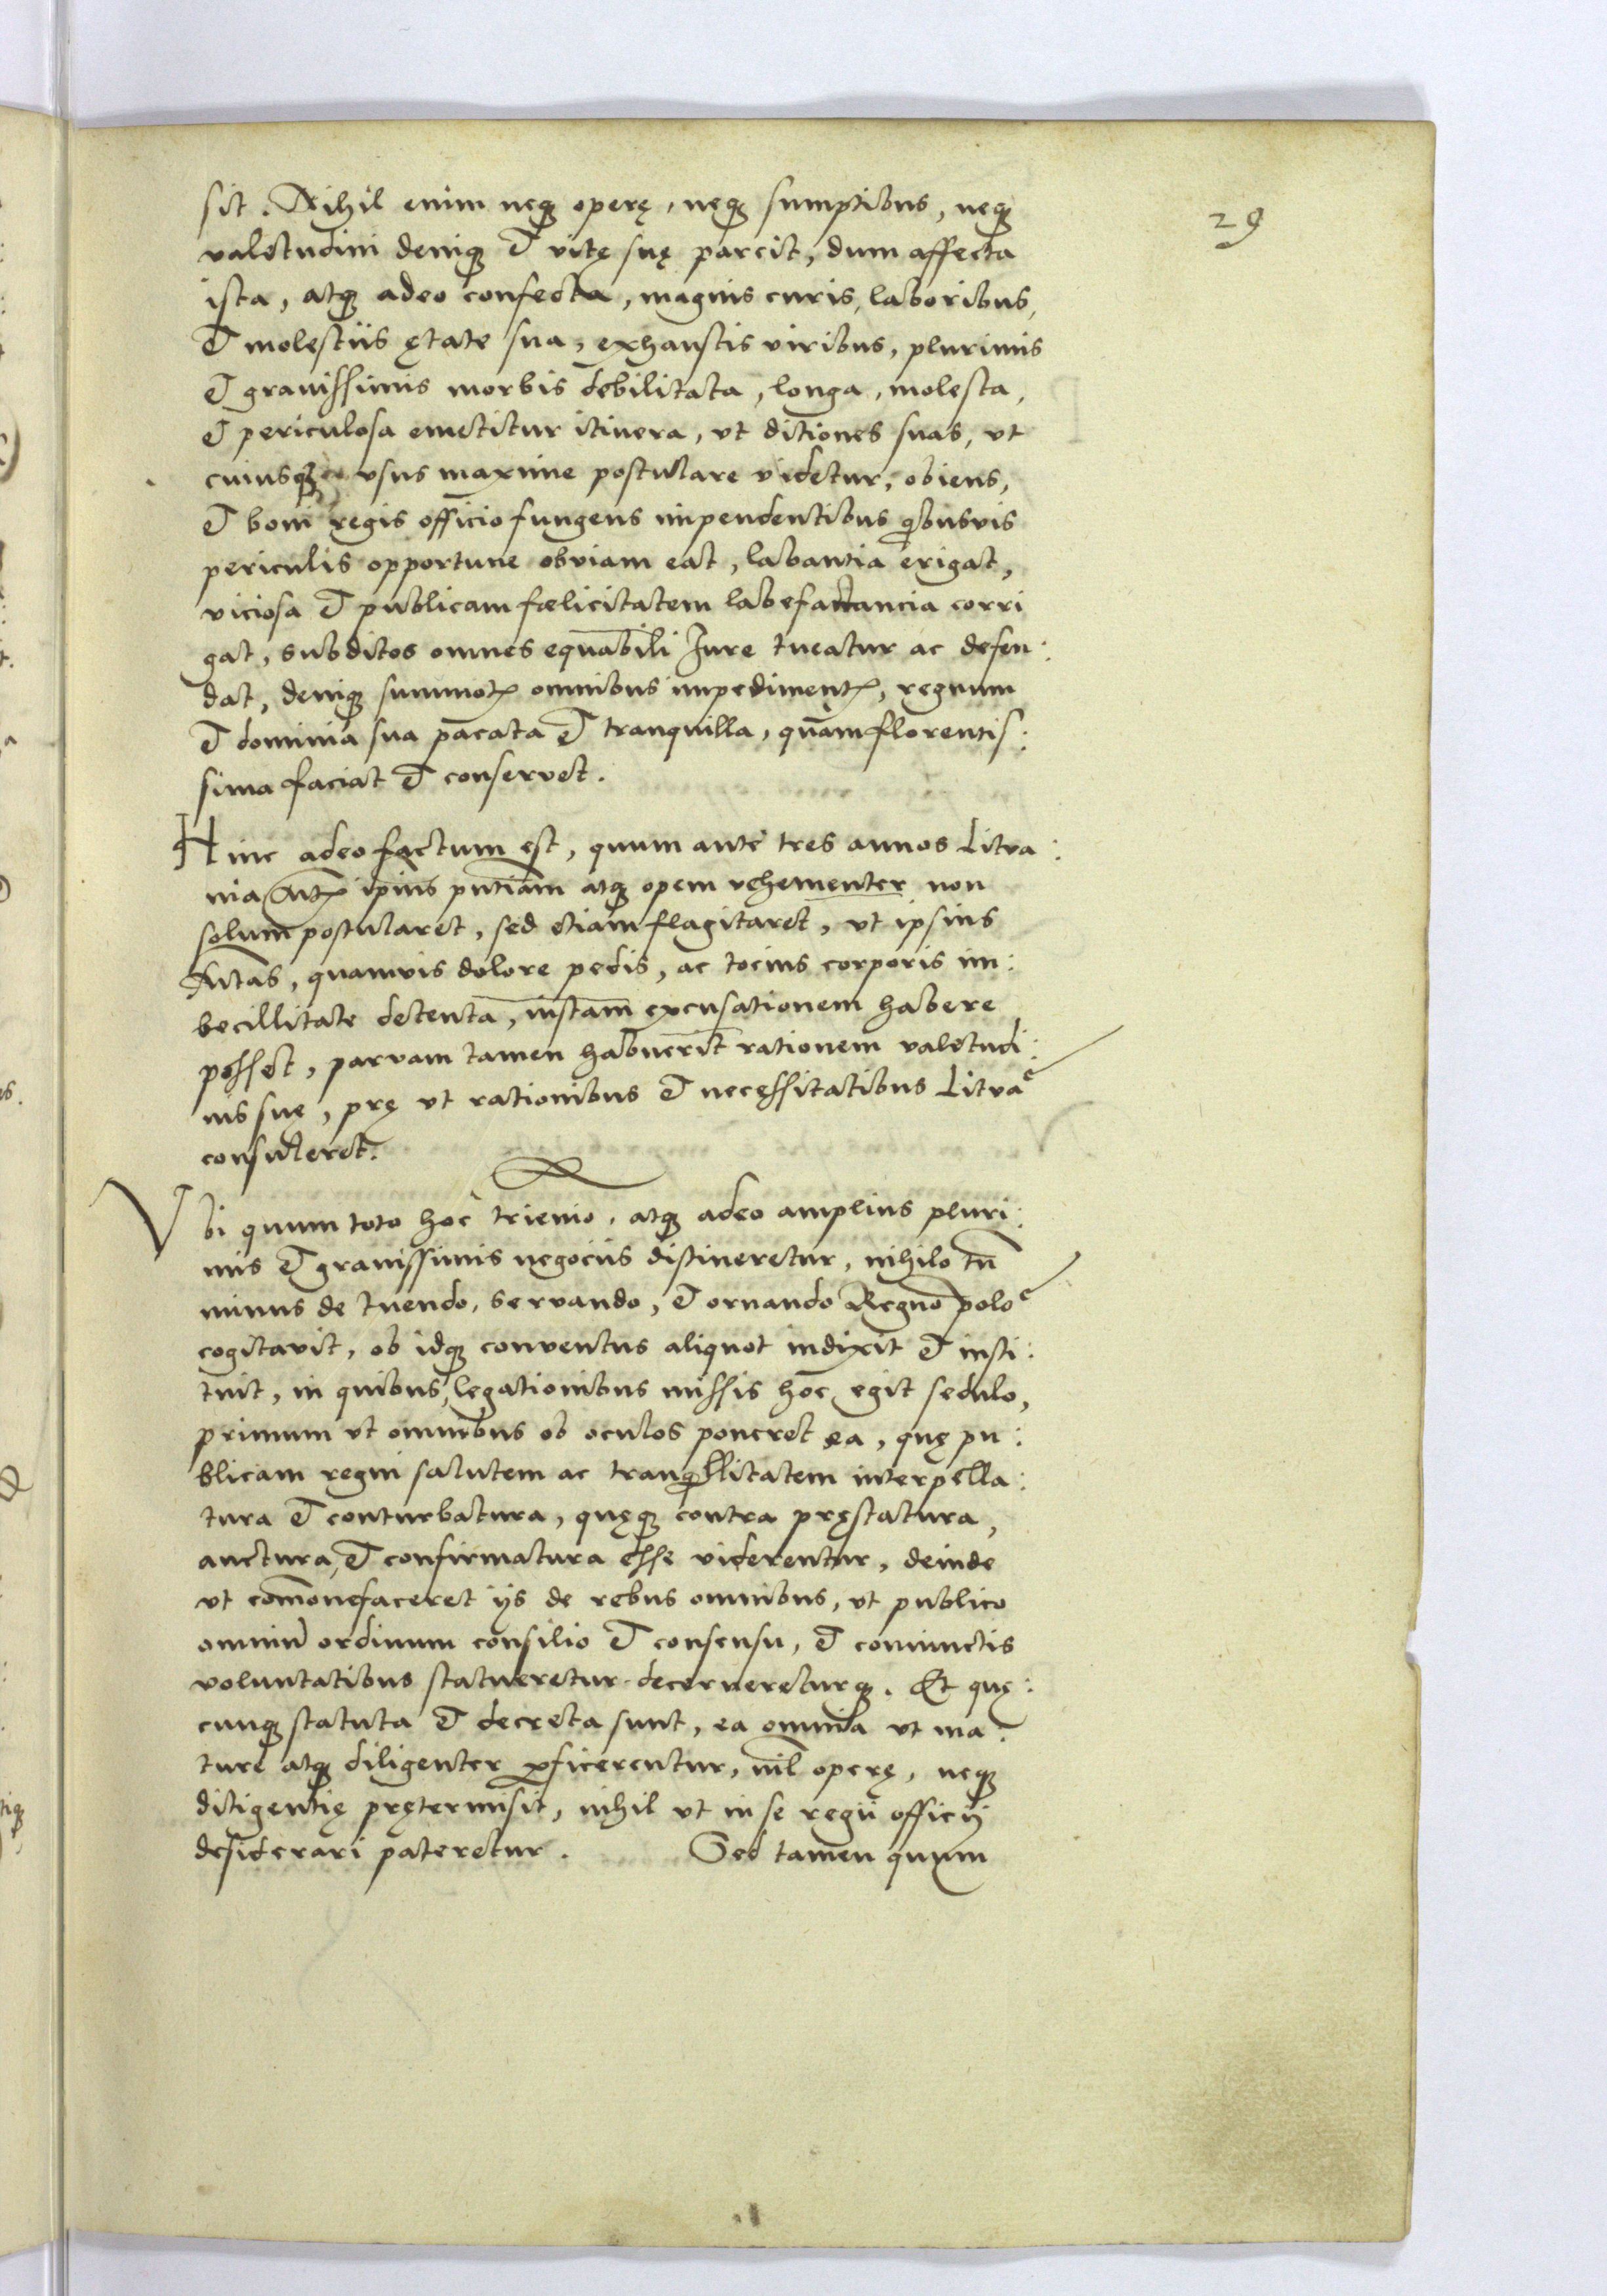 29
sit. Nihil enim neqꝫ operę, neqꝫ sumptibus, neqꝫ
valetudini deniqꝫ et vitę suę parcit, dum affecta
ista, atqꝫ adeo confecta, magnis curis, laboribus,
et molestiis ętate sua, exhaustis viribus, plurimis
et gravissimis morbis debilitata, longa, molesta,
et periculosa emetitur itinera, ut ditiones suas, ut
cuiusqꝫ usus maxime postulare videtur, obiens,
et boni regis officio fungens impendentibus qibusvis
periculis opportune obviam eat, labantia erigat,
viciosa et publicam fœlicitatem labefactancia corri
gat, subditos omnes equabili Jure tueatur ac defen:
dat, deniqꝫ summotꝭ omnibus impedimentꝭ, regnum
et dominia sua pacata et tranquilla, quam florentis:
sima faciat et conservet.
Hinc adeo factum est, quum ante tres annos Litua:
nia Mtꝭ ipius pntiam atqꝫ opem vehementer non
solum postularet, sed etiam flagitaret, ut ipsius
Mtas, quamvis dolore pedis, ac tocius corporis im:
becillitate detenta, iustam excusationem habere
posset, parvam tamen habuerit rationem valetudi:
nis suę, prę ut rationibus et necessitatibus Lituae
consuleret.
Ubi quum toto hoc trienio, atqꝫ adeo amplius pluri:
mis et gravissimis negociis distineretur, nihilo tn̄
minus de tuendo, servando, et ornando Regno poloe
cogitavit, ob idqꝫ conventus aliquot indixit et insti:
tuit, in quibus, legationibus missis hoc egit sedulo,
primum ut omnibus ob oculos poneret ea, quę pu:
blicam regni salutem ac tranqillitatem interpella:
tura et conturbatura, quęqꝫ contra pręstatura,
auctura, et confirmatura esse viderentur, deinde
ut com̄onefaceret ijs de rebus omnibus, ut publico
omniū ordinum consilio et consensu, et coniunctis
voluntatibus statueretur decernereturqꝫ. Et quę:
cunqꝫ statuta et decreta sunt, ea omnia ut ma:
ture atqꝫ diligenter ꝑficerentur, nil operę, neqꝫ
diligentię prętermisit, nihil ut in se regii officij
desiderari pateretur. Sed tamen quum